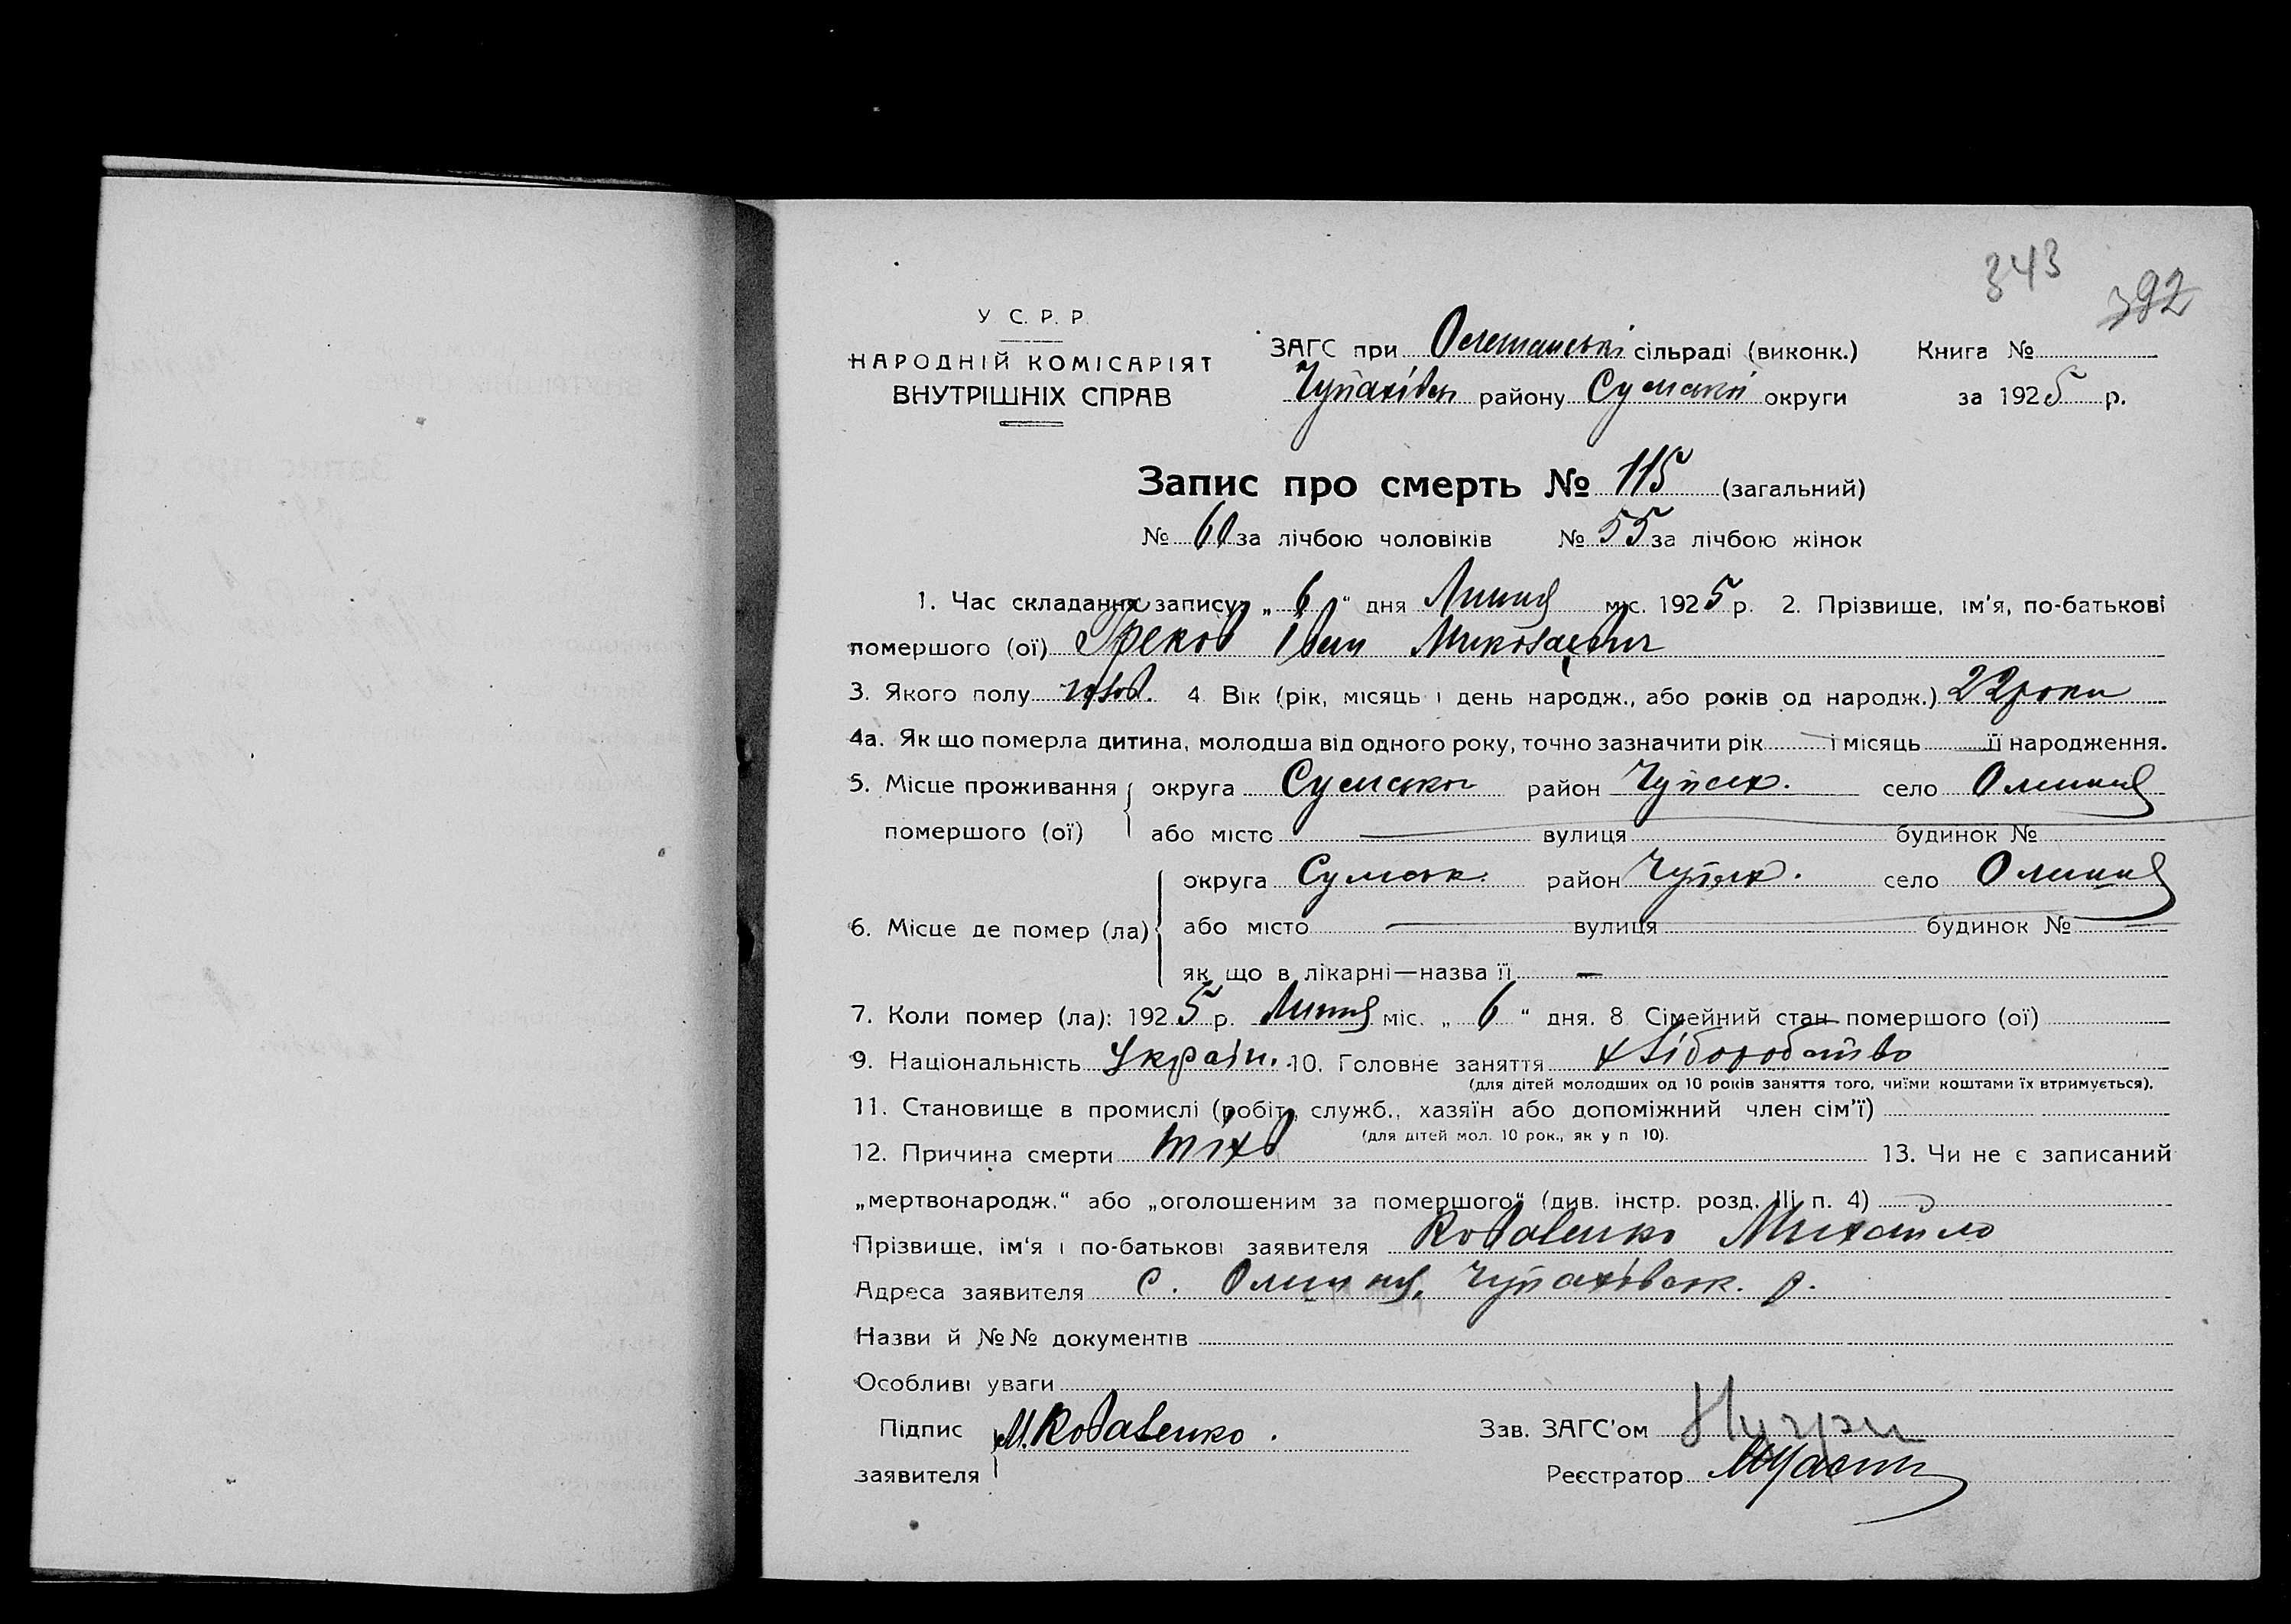 343
392
У С. Р. Р.
НАРОДНІЙ КОМІСАРІЯТ
ВНУТРІШНІХ СПРАВ
ЗАГС при Олешанські сільраді (виконк.) Книга №
Чупахівськ району Сумської округи за 1925 р.
Запис про смерть № 115 (загальний)
№ 60 за лічбою чоловіків № 55 за лічбою жінок
1. Час складання запису „ 6 “ дня Липня міс. 1925 р. 2. Прізвище, ім'я, по-батькові
помершого (ої) Греков Іван Миколаєвич
3. Якого полу чолов. 4. Вік (рік, місяць і день народж., або років од народж.) 22 роки
4а. Як що померла дитина, молодша від одного року, точно зазначити рік і місяць її народження.
5. Місце проживання округа Сумської район Чупах. село Олешня
помершого (ої) або місто вулиця будинок №
округа Сумськ. район Чупах. село Олешня
6. Місце де помер (ла) або місто вулиця будинок №
як що в лікарні—назва її —
7. Коли помер (ла): 1925 р. Липня міс. „ 6 “ дня. 8 Сімейний стан помершого (ої)
9. Національність Україн. 10. Головне заняття хліборобство
(для дітей молодших од 10 років заняття того, чиїми коштами їх втримується).
11. Становище в промислі (робіт., служб., хазяїн або допоміжний член сім'ї)
(для дітей мол. 10 рок., як у п 10).
12. Причина смерти 13. Чи не є записаний
„мертвонародж.“ або „оголошеним за помершого“ (див. інстр. розд. III п. 4)
Прізвище, ім'я і по-батькові заявителя Коваленко Михайло
Адреса заявителя с. Олешня, Чупахівськ. р.
Назви й №№ документів
Особливі уваги
Підпис М. Коваленко. Зав. ЗАГС'ом
заявителя Реєстратор